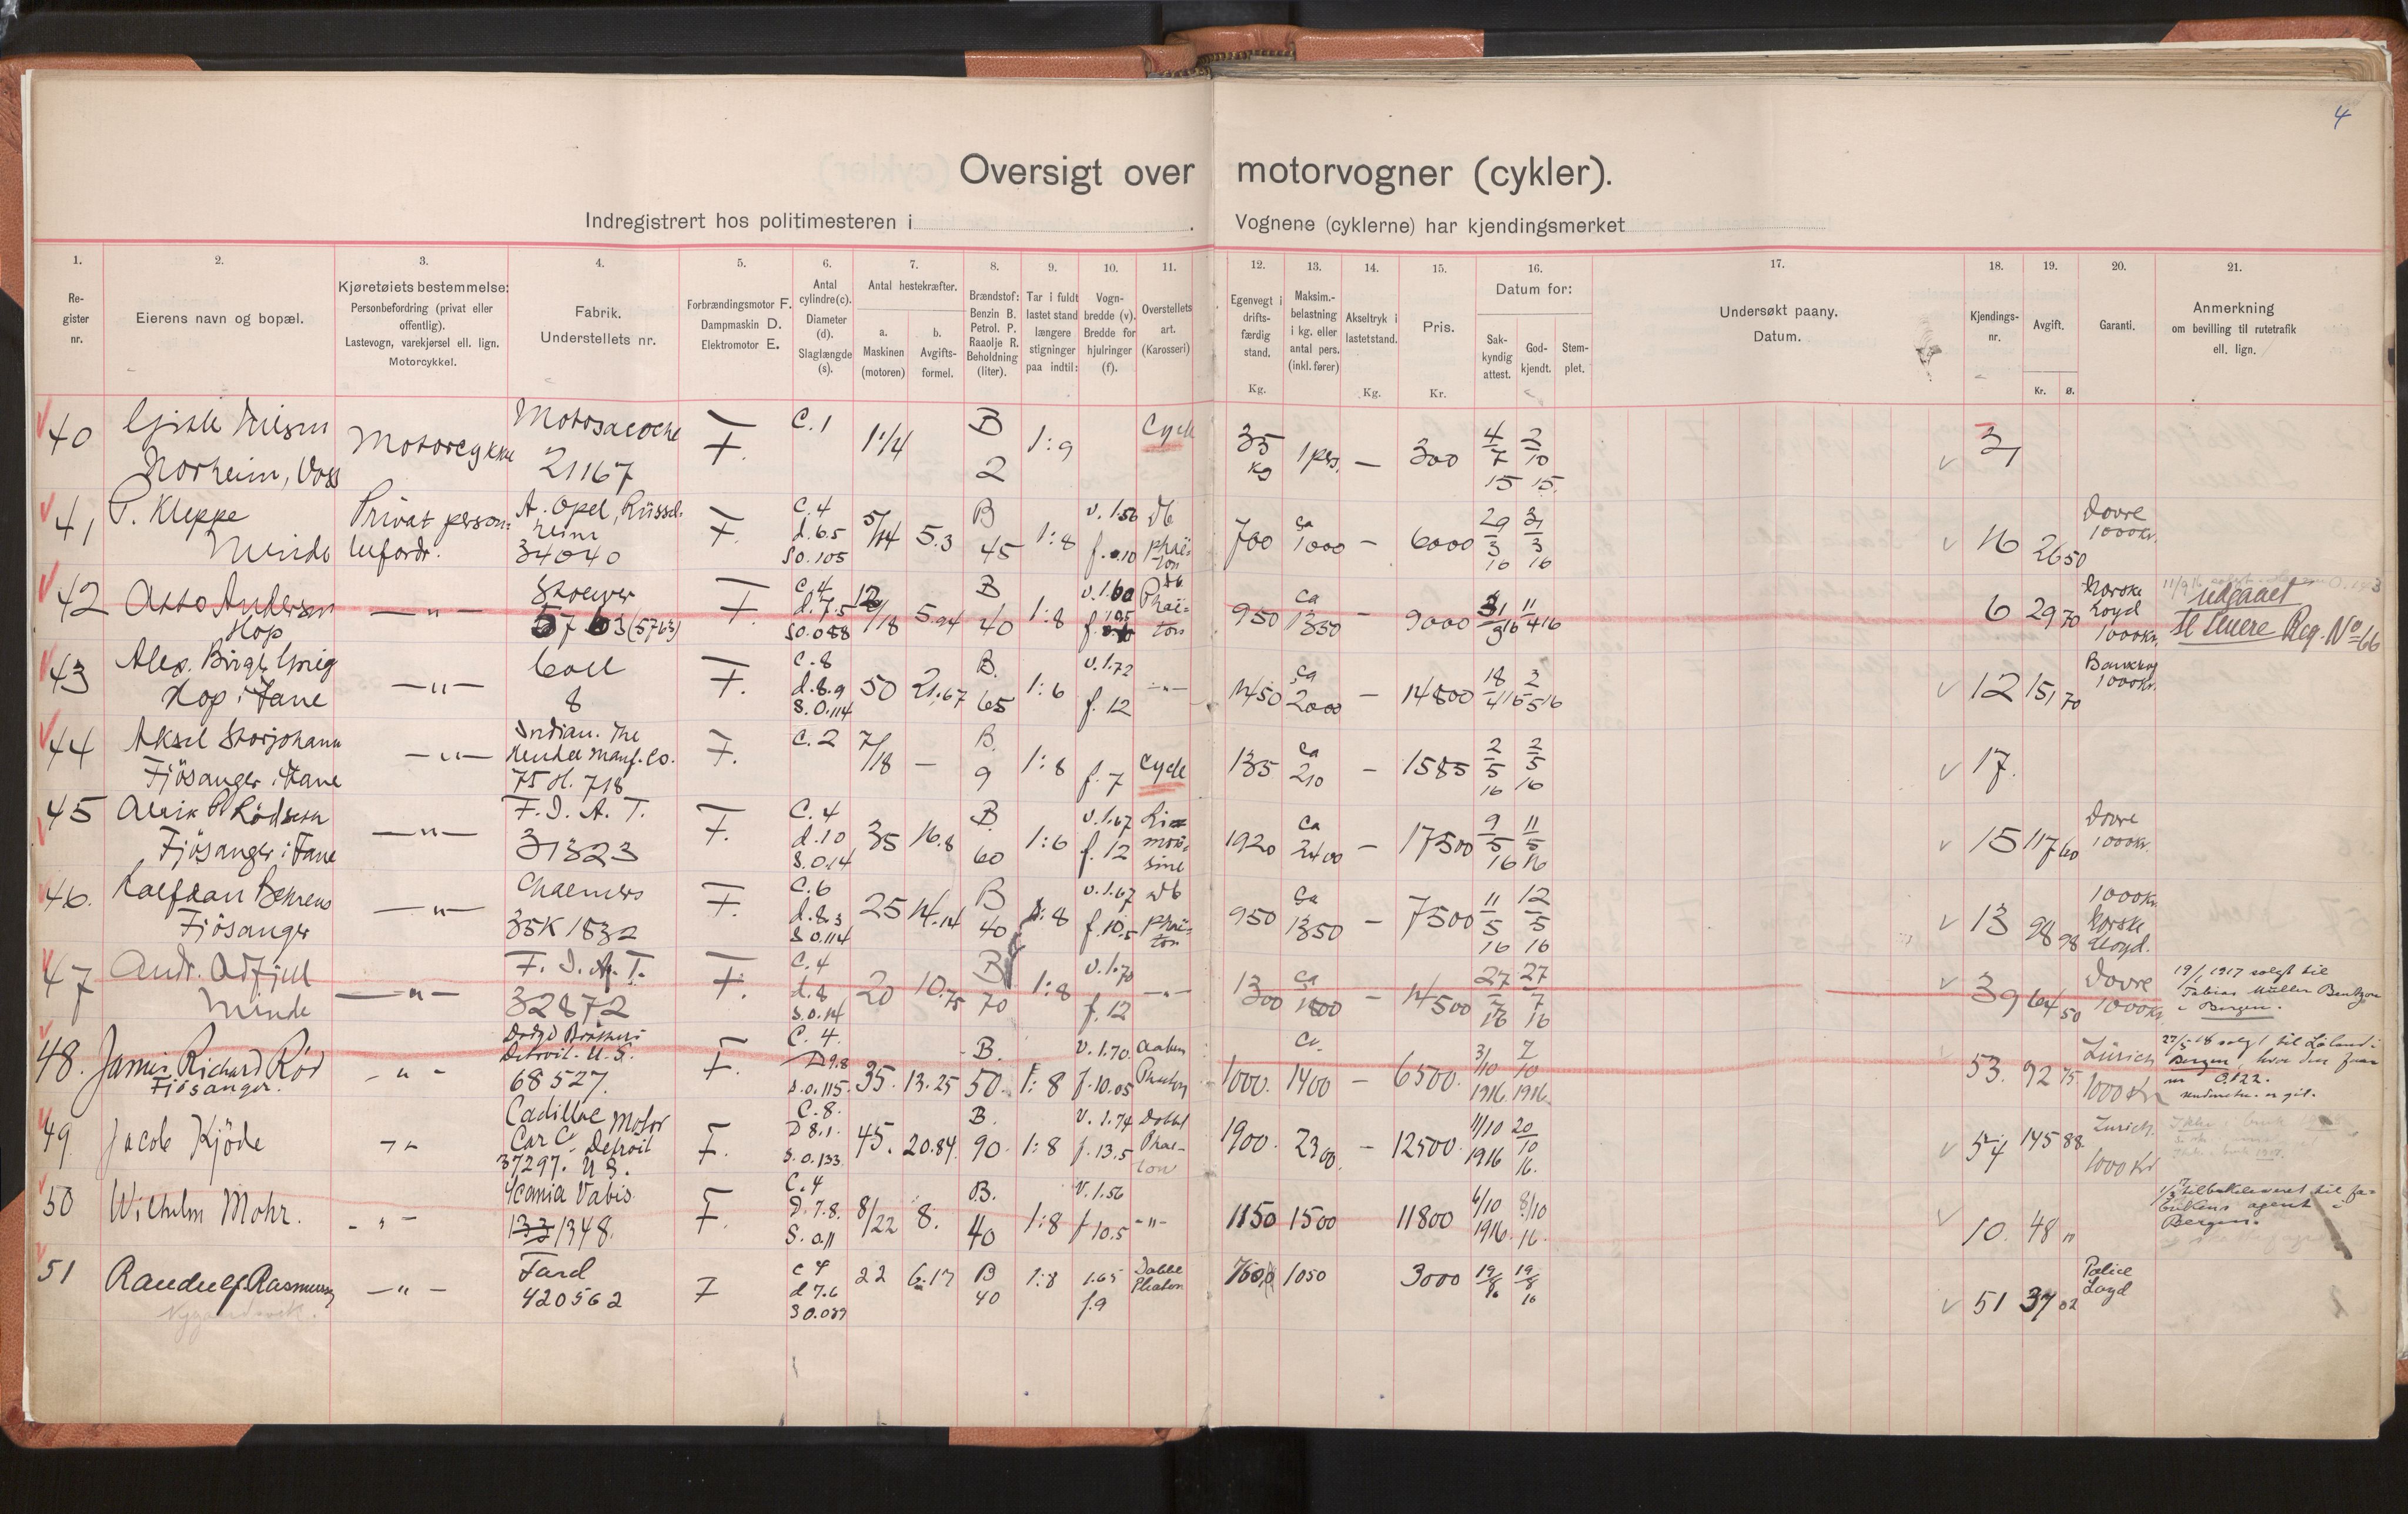 4
Oversigt over motorvogner (cykler).
Indregistrert hos politimesteren i . Vognene (cyklerne) har kjendingsmerket
1. 2. 3. 4. 5. 6. 7. 8. 9. 10. 11. 12. 13. 14. 15. 16. 17. 18. 19. 20. 21.
Re-
gister
nr.
Eierens navn og bopæl.
Kjøretøiets bestemmelse:
Personbefordring (privat eller
offentlig).
Lastevogn, varekjørsel ell. lign.
Motorcykkel.
Fabrik.
Understellets nr.
Forbrændingsmotor F.
Dampmaskin D.
Elektromotor E.
Antal
cylindre(c).
Diameter
(d).
Slaglængde
(s).
Antal hestekræfter.
a.
Maskinen
(motoren)
b.
Avgifts-
formel.
Brændstof:
Benzin B.
Petrol. P.
Raaolje R.
Beholdning
(liter).
Tar i fuldt
lastet stand
længere
stigninger
paa indtil:
Vogn-
bredde (v).
Bredde for
hjulringer
(f).
Overstellets
art.
(Karosseri)
Egenvegt i
drifts-
færdig
stand.
Kg.
Maksim.-
belastning
i kg. eller
antal pers.
(inkl. fører)
Akseltryk i
lastet stand.
Kg.
Pris.
Kr.
Datum for:
Sak-
kyndig
attest.
God-
kjendt.
Stem-
plet.
Undersøkt paany.
Datum.
Kjendings-
nr.
Avgift.
Kr. Ø.
Garanti.
Anmerkning
om bevilling til rutetrafik
ell. lign.
40 Gjitle Nilsen Motorcykkel Motosacoche F. C.1 1 1/4 B 1:9 Cycle 35 1 pers. — 300 4/7 2/10
Norheim, Voss 21167 2 kg 15 15.
41 P. Kleppe Privat person- A. Opel, Rüssel- F. C.4 5/14 5.3 B 1:8 v. 1.50 Db 700 ca 1000 — 6000 29/3 31/3 16 2650 Dovre
Minde befordr. heim d.6.5 45 f. 0.10 phaë- 16 16 1000 kr.
34040 S0.105 ton
42 Otto Andersen — " — Stoewer F. C.4 5.94 B 1:8 v.1.60 Db. 950 ca 1350 — 9000 11/4 16 6 29 70 Norske udgaaet
Hop (5763) d.7.5 40 Phaë- Loyd Reg. No 66
S0.088 ton 1000 kr.
43 Alex. Birger Grieg — " — Cole F. C.8 50 21.67 B. 1:6 v. 1.72 — " — 1450 ca 2000 — 14800 18/4 16 12 151 70
Hop i Fane 8 d.8.9 65 f. 12 1000 kr.
S.0.114
44 Aksel Storjohann — " — Indian. The F. C.2 7/18 — B. 1:8 f. 7 Cycle 135 ca 210 — 1585 2/5 2/5 17.
Fjösanger i Fane Hendee Manf. Co. 9 16 16
75 H. 718
45 Rödseth — " — F. I. A. T. F. C.4 35 16.8 B. 1:6 v. 1.67 Li- 1920 ca 2400 — 17500 9/5 11/5 15 117 60 Dovre
Fjösanger i Fane 31323 d.10 60 f. 12 mou- 16 16 1000 kr.
S.0.14 sine
46. Halfdan Behrens — " — Chalmers F. C.6 25 14.14 B 1:8 v. 1.67 Db 950 ca 1350 — 7500 11/5 12/5 13 98 98 1000 kr.
Fjösanger 35K 1832 d.8.3 40 f. 10.5 phaë- 16 16 Norske
S 0.114 ton Lloyd.
47 Andr. Odfjell — " — F. I. A. T. F. C.4 20 10.75 B 1:8 v. 1.70 — " — 1300 ca 1800 — 14500 27/7 27/7 39 64 50 Dovre 19/1 1917 solgt til
Minde 32872 d.8 70 f. 12 16 16 1000 kr. Tobias Müller Bentzon
S.0.14 i Bergen.
48. James Richard Rød - " - Dodge Brothers F. C. 4. 35. 13.25 B. 1:8 V. 1.70. Aaben 1000. ca. 1400 — 6500. 3/10 7/10 53. 92 75 Zürich 27/5 18 solgt til i
Fjösanger. Detroit. U. S. D 9.8 50. f. 10.05 Phaeton 1916. 1916. 1000 Kr Bergen, hvor den faar
68527. S.0.115. nr 0.122.
49 Jacob Kjöde - " - Cadillac Motor F. C. 8. 45. 20.84. B. 1:8 V. 1.74 Dobbel 1900. 2300. — 12500. 11/10 20/10 54 145 88 Zürich.
Car Co. Detroit D 8.1. 90. f. 13.5 Phae- 1916 16. 1000 Kr
37297. U S. S. 0.133. ton
50 Wilhelm Mohr. - " - Scania Vabis. F. C. 4 8/22 8. B. 1:8 V. 1.56 - " - 1150 1500 11800 6/10 8/10 10. 48 " tilbakeleveret til fa-
1348. D. 7.8. 40 f 10.5 1916. 16. brikens agent i
S. 0.11 Bergen.
51 Randulf Rasmussen - " - Ford F C 4 22 6.17 B 1:8 1.65 Dobbel 1050 3000 19/8 19/8 51 37 02 Police
420562 d 7.6 40 f. 9 Pheaton 16 16 Loyd
S 0.089